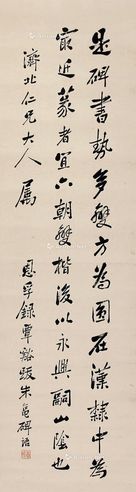 是碑書勢多變方為圓在漢隸中為
最近篆者宜六朝變楷後以永興嗣山陰也
濟北仁兄大人屬
恩孚錄覃谿跋朱龜碑語